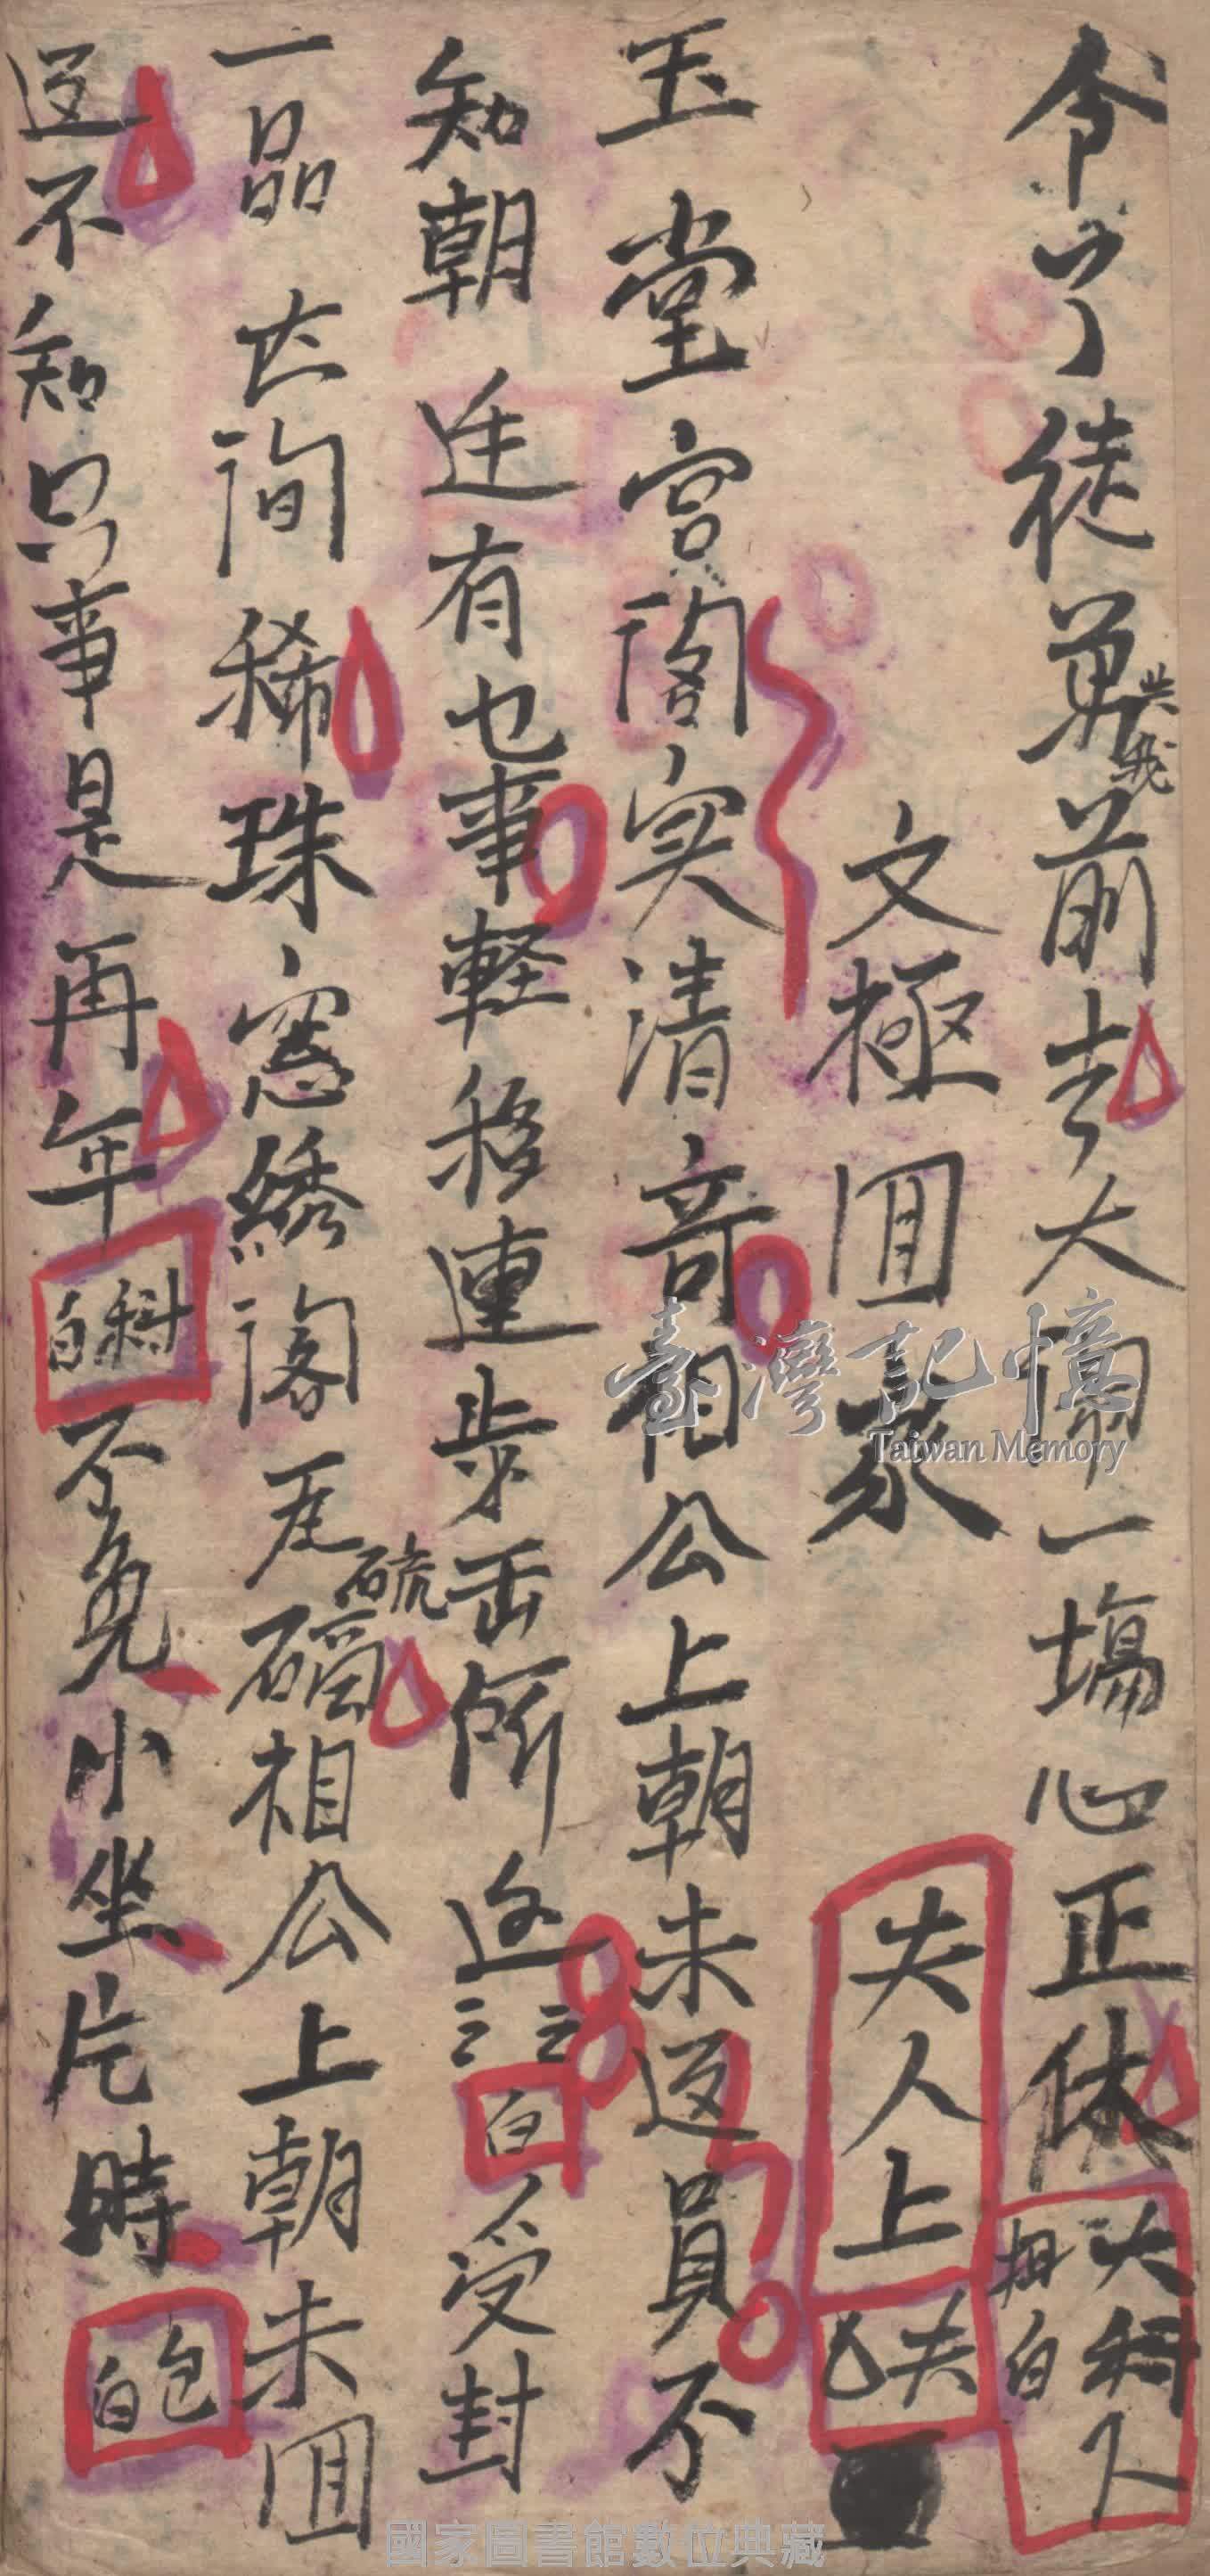 令了徒弟共我前去大鬧一塲心正休大科介担白
文極囬家夫人上夫乚
玉堂宮閣实清奇相公上朝未返員不
知朝廷有乜事軽移連步岳所边白人受封
一品世間稀珠窓綉閣尾硫磂相公上朝未囬
返不知只事是再年科白不免小坐片時包白
臺灣記憶
Taiwan Memory
國家圖書館數位典藏